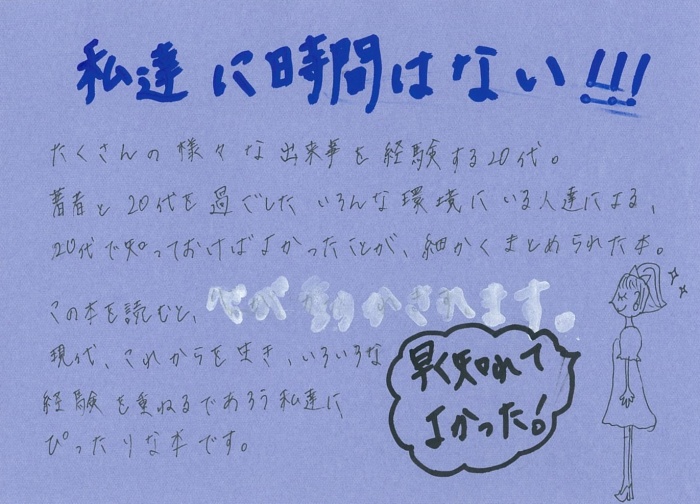 私達に時間はない!!!
たくさんの様々な出来事を経験する20代。
著者と20代を過ごしたいろんな環境にいる人達による、
20代で知っておけばよかったことが、細かくまとめられた本。
この本を読むと、心が動かされます。
現代、これからを生き、いろいろな
経験を重ねるであろう私達に
ぴったりな本です。
早く知れて
よかった!